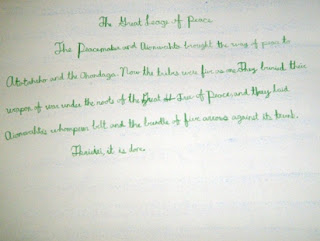 The Great Leage of Peace
The Peacemaker and Aionwahta brought the way of peace to
Atotohaho and the Onondaga. Now the tribes were five as one. They buried their
weapon of war under the roots of the Great Tree of Peace, and they laid
Aionwahtas whampum belt and the bundle of five arrows against its trunk.
it is done.